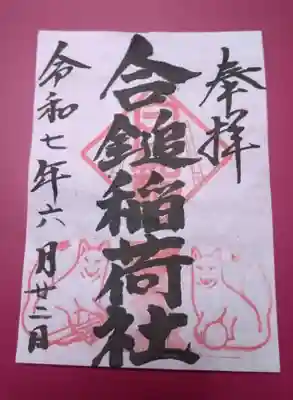 奉拝
合鎚稲荷社
令和七年六月廿二日